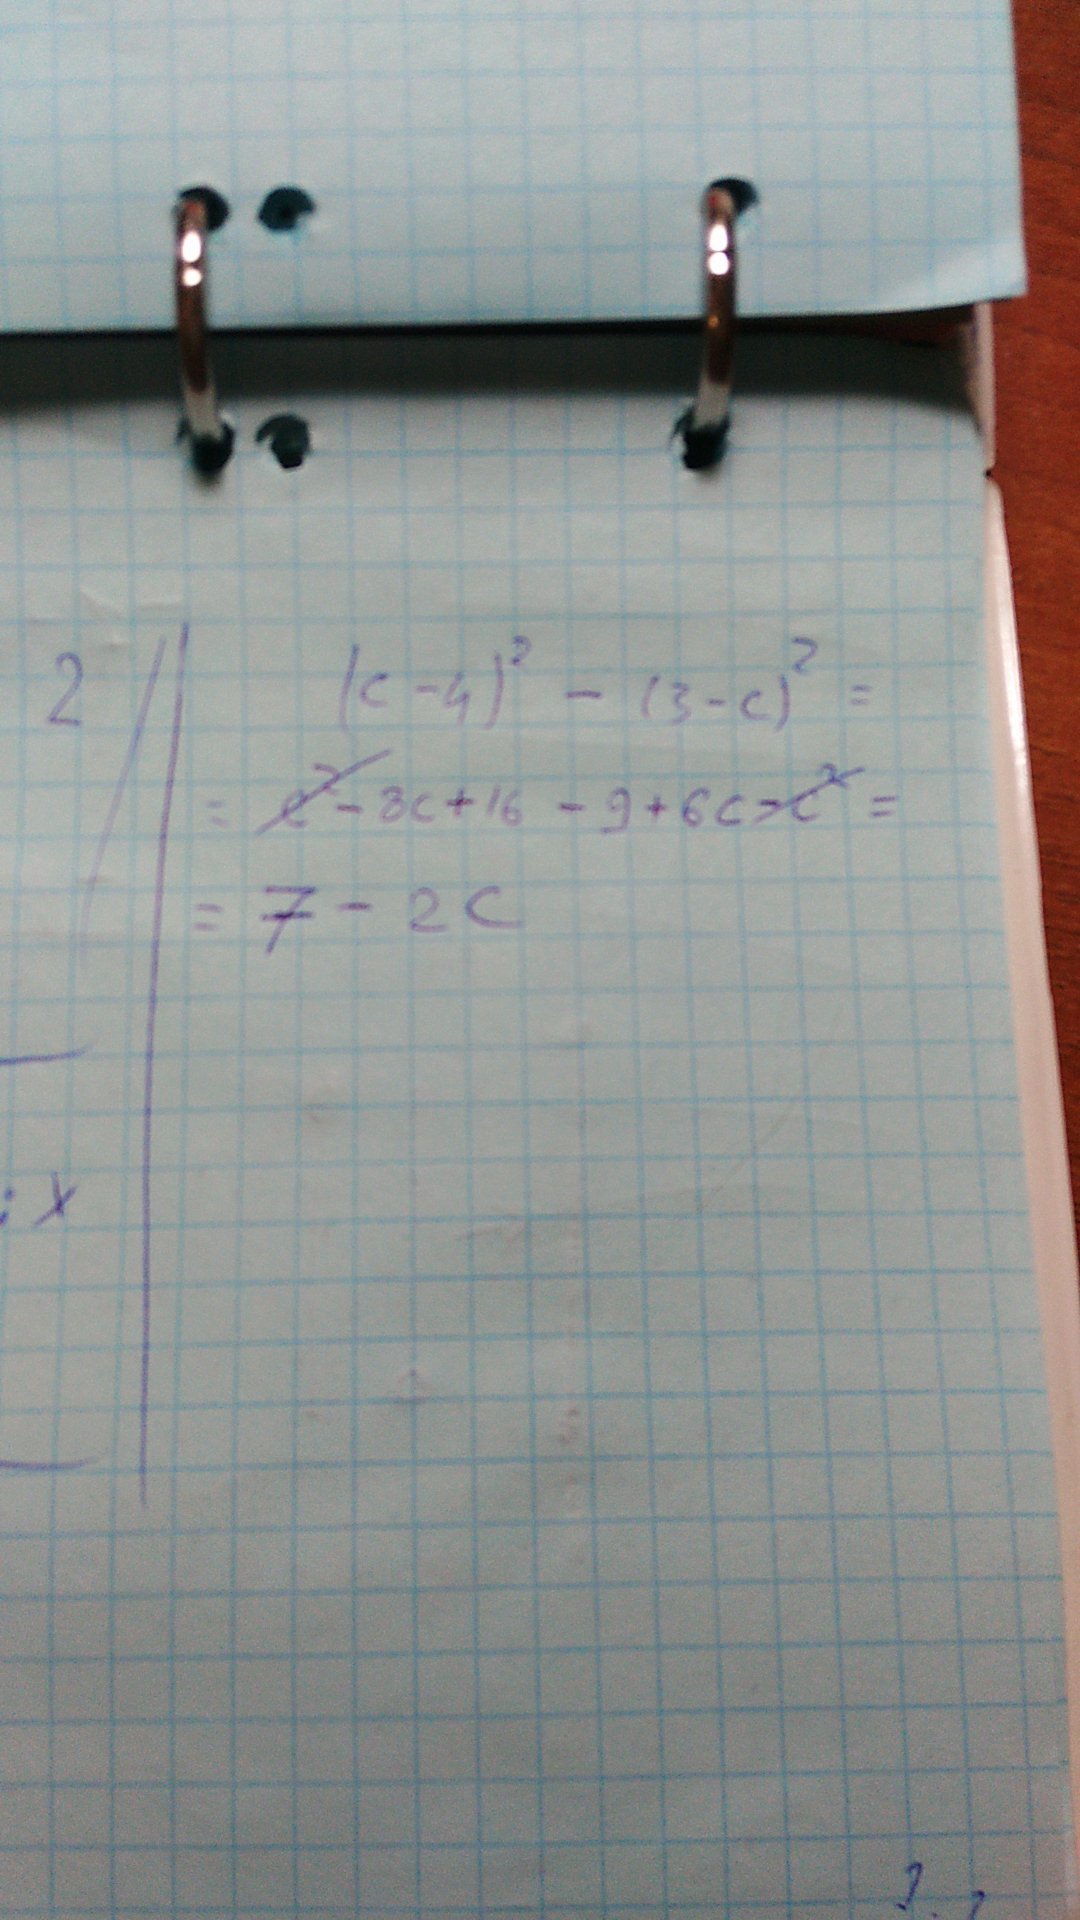 2
(c-4)² - (3-c)² =
= c² - 8c + 16 - 9 + 6c - c² =
= 7 - 2c
; x